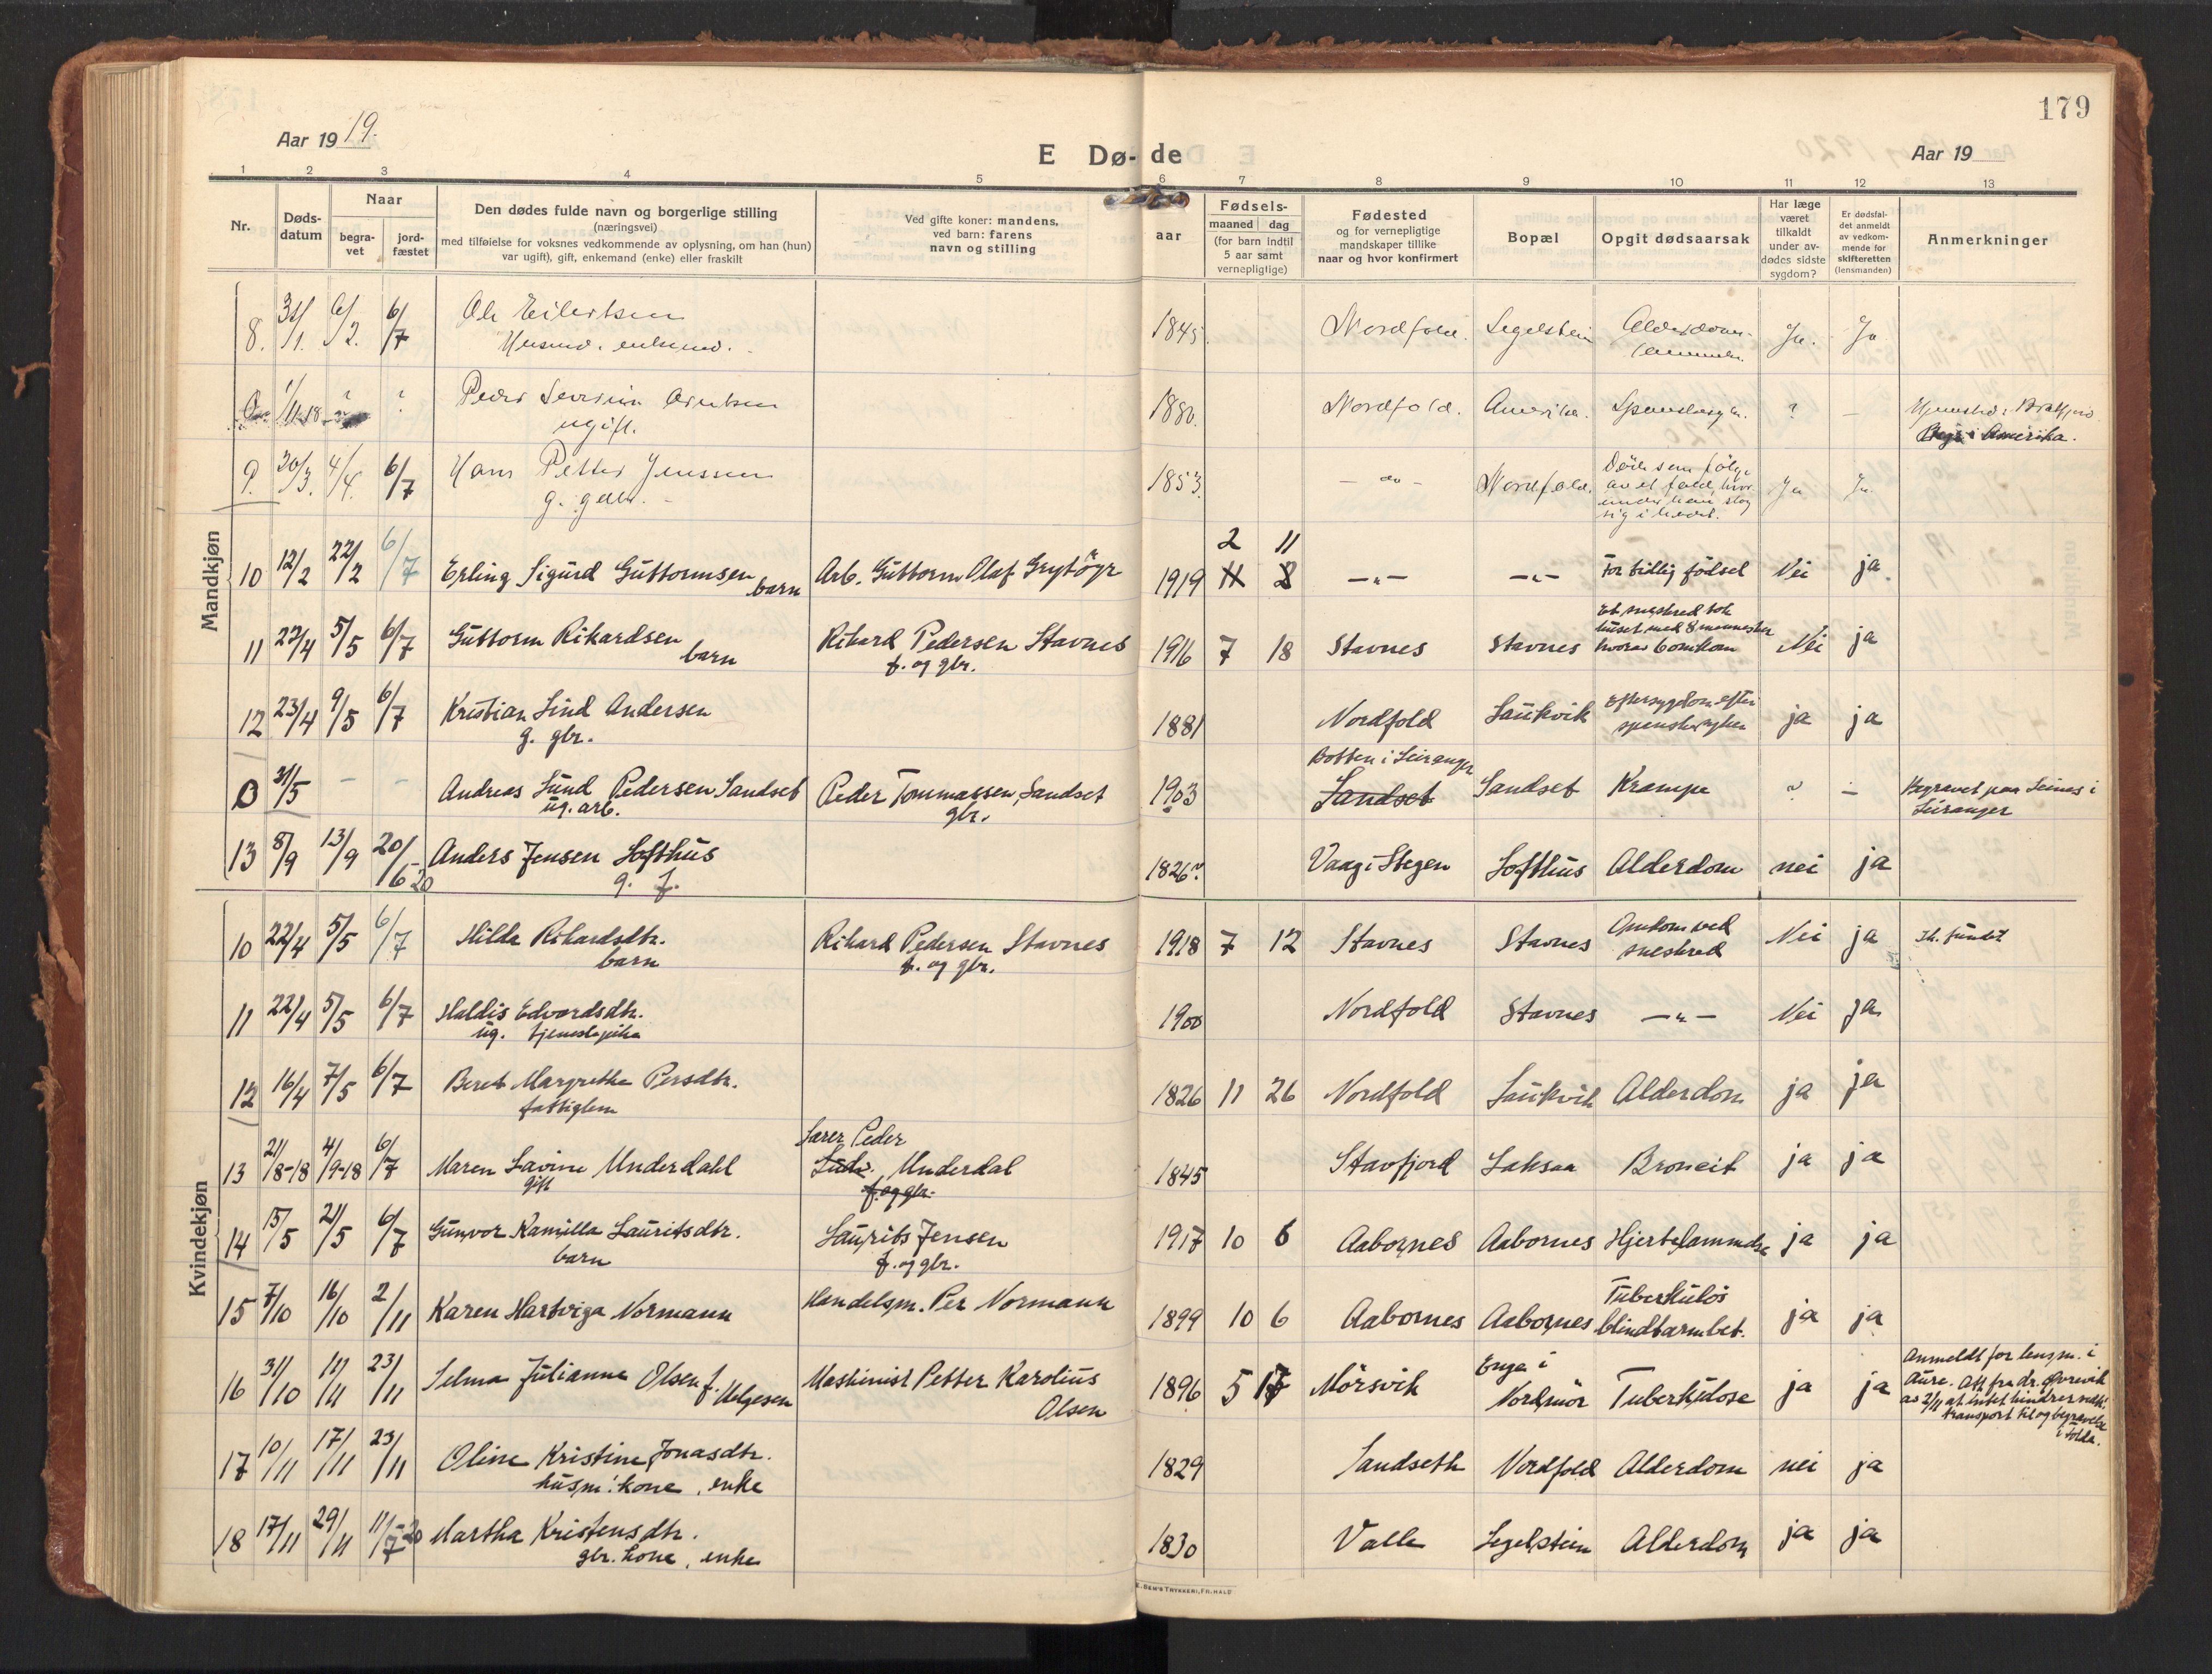 179
Aar 19 19.
E Dø- de
Aar 19
1 2 3 4 5 6 7 8 9 10 11 12 13
Nr.
Døds-
datum
Naar
begra-
vet
jord-
fæstet
Den dødes fulde navn og borgerlige stilling
(næringsvei)
med tilføielse for voksnes vedkommende av oplysning, om han (hun)
var ugift), gift, enkemand (enke) eller fraskilt
Ved gifte koner: mandens,
ved barn: farens
navn og stilling
Fødsels-
aar
maaned dag
(for barn indtil
5 aar samt
vernepligtige)
Fødested
og for vernepligtige
mandskaper tillike
naar og hvor konfirmert
Bopæl
Opgit dødsaarsak
Har læge
været
tilkaldt
under av-
dødes sidste
sygdom?
Er dødsfal-
det anmeldt
av vedkom-
mende for
skifteretten
(lensmanden)
Anmerkninger
Mandkjøn
8. 31/1. 6/2. 6/7 Ole Eilertsen 1845. Nordfold. Segelstein Alderdoms- Ja. Ja
Husmd. enkemd.
0 1/11-18 ? ? Peder Severin 1880. Nordfold. Amerika. Spanskesyk. ? —
ugift.
Amerika.
9. 30/3. 4/4. 6/7 Hans Petter Jenssen 1853. — do — Nordfold. Døde som følge Ja Ja
g. gdbr. av et fald, hvor-
under han slog
sig i hodet.
2 11
10 12/2 22/2 6/7 Erling Sigurd Guttormsen barn Arb. Guttorm Olaf Grytöyr 1919 11 8 —"— —"— For tidlig födsel Nei ja
11 22/4 5/5 6/7 Guttorm Rikardsen barn Rikard Pedersen Stavnes 1916 7 18 Stavnes Stavnes Et sneskred tok Nei ja
f. og gbr. huset med 8 mennesker
hvorav 6 omkom
12 23/4 9/5 6/7 Kristian Lund Andersen 1881 Nordfold Laukvik Eftersygdom efter ja ja
g. gbr. spanskesyken
Botten i Leiranger
0 31/5 - - Andreas Lund Pedersen Sandset Peder Tommassen, Sandset 1903 Sandset Sandset Krampe ? — Begravet paa Leines i
ug. arb. gbr. Leiranger
13 8/9 13/9 20/6-20 Anders Jensen Lofthus 1826 Vaag i Stegen Lofthus Alderdom nei ja
g. f.
Kvindekjøn
10 22/4 5/5 6/7 Hilda Rikardsdtr. Rikard Pedersen Stavnes 1918 7 12 Stavnes Stavnes Omkom ved Nei ja Ik. fundet
barn f. og gbr. sneskred
11 22/4 5/5 6/7 Haldis Edvardsdtr. 1900 Nordfold Stavnes —"— Nei ja
ug. tjenestepike
12 16/4 7/5 6/7 Beret Margrethe Persdtr. 1826 11 26 Nordfold Laukvik Alderdom ja ja
fattiglem
Lærer Peder
13 21/8-18 4/9-18 6/7 Maren Lavine Underdahl Underdal 1845 Stavfjord Laksaa Bronkit ja ja
gift f. og gbr.
14 15/5 21/5 6/7 Gunvor Kamilla Lauritsdtr. Laurits Jensen 1917 10 6 Aabornes Aabornes Hjertelammelse ja ja
barn f. og gbr.
15 7/10 16/10 2/11 Karen Hartviga Normann Handelsm. Per Normann 1899 10 6 Aabornes Aabornes Tuberkulös ja ja
blindtarmbet.
16 31/10 11/11 23/11 Selma Julianna Olsen f. Helgesen Maskinist Petter Karolius 1896 5 Mörsvik Enge i Tuberkulose ja ja Anmeldt for lensm. i
Olsen Nordmör Aure. Att. fra dr. Övrevik
av 2/11 at intet hindrer
transport til og begravelse
i Folda.
17 10/11 17/11 23/11 Oline Kristine Jonasdtr. 1829 Sandseth Nordfold Alderdom nei ja
husm. kone, enke
18 17/11 29/11 11/7-20 Martha Kristensdtr. 1830 Valle Segelstein Alderdom ja ja
gbr. kone, enke